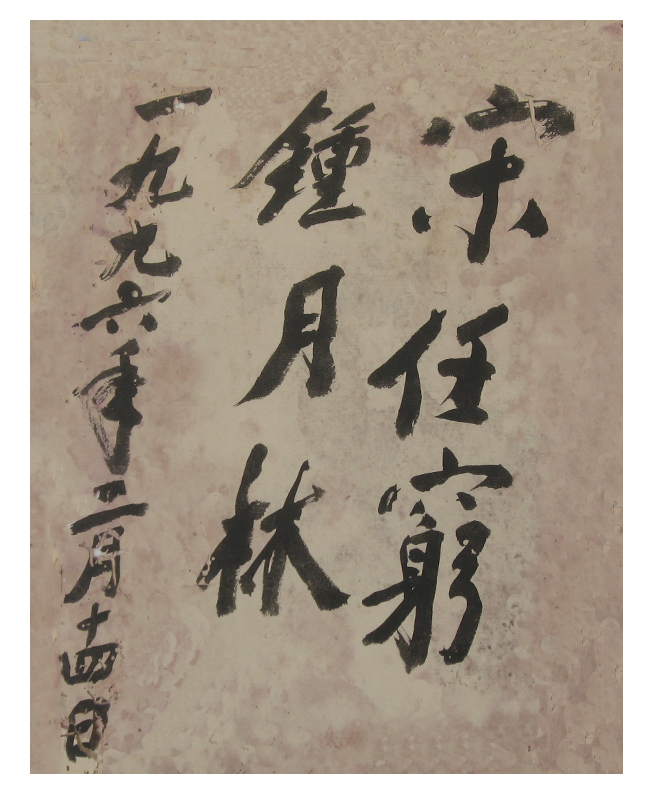 宋任窮
鍾月林
一九九六年二月十四日